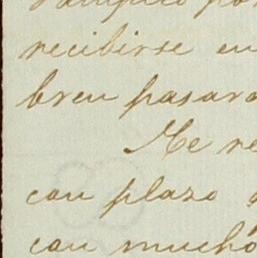 recibirse en
breu pasara
Me re
con plazo
con mucho